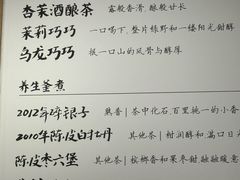 杏茉酒酿茶 露般香清,酥般甘长
茉莉巧巧 一口喝下,整片绿野和一缕阳光甜醇
乌龙巧巧 抿一口山的风骨与醇厚
养生釜煮
2012年碎银子 熟香|茶中化石,百里挑一的小香
2010年陈皮白牡丹 其他茶|甜润醇和,满口日光
陈皮六堡 其他茶|槟榔香和果枣甜融融暖意